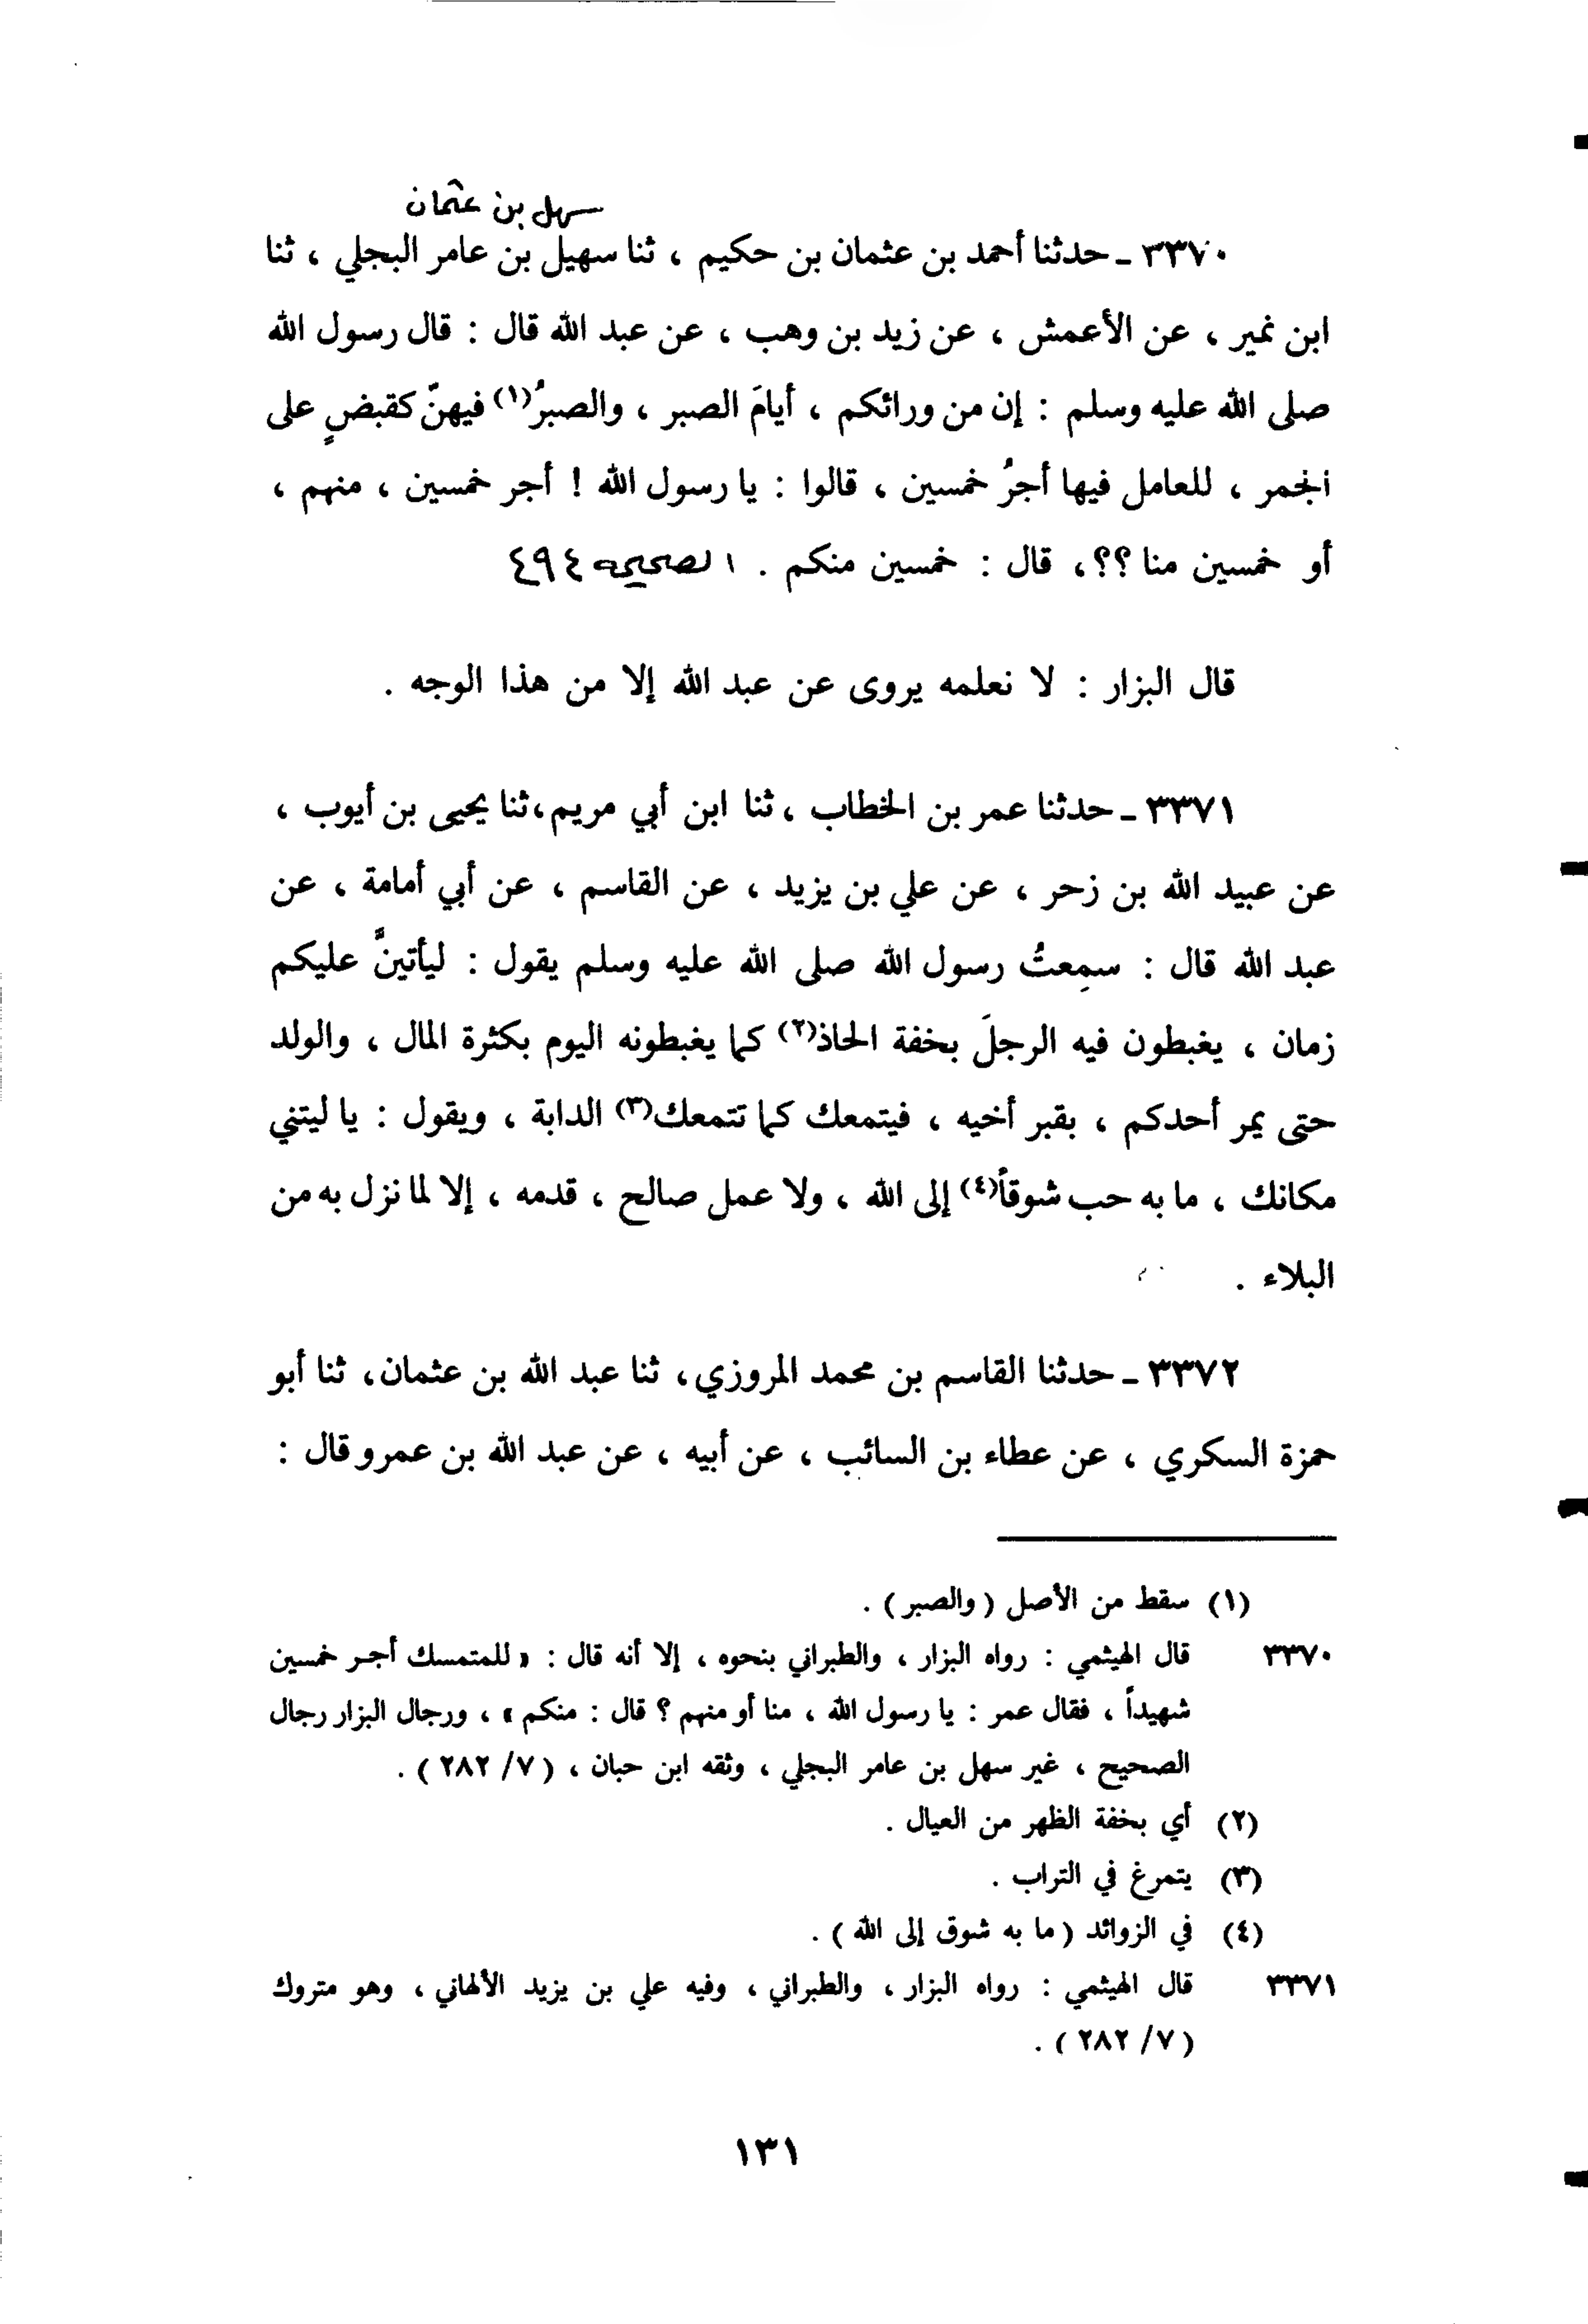 سهل بن عثمان
٣٣٧٠ ـ حدثنا أحمد بن عثمان بن حكيم ، ثنا سهيل بن عامر البجلي ، ثنا
ابن نمير ، عن الأعمش ، عن زيد بن وهب ، عن عبد الله قال : قال رسول الله
صلى الله عليه وسلم : إن من ورائكم ، أيامَ الصبر ، والصبرُ(١) فيهنّ كقبضٍ على
الجمر ، للعامل فيها أجرُ خمسين ، قالوا : يا رسول الله ! أجر خمسين ، منهم ،
أو خمسين منا ؟؟، قال : خمسين منكم . الصحيحة ٤٩٤
قال البزار : لا نعلمه يروى عن عبد الله إلا من هذا الوجه .
٣٣٧١ ـ حدثنا عمر بن الخطاب ، ثنا ابن أبي مريم، ثنا يحيى بن أيوب ،
عن عبيد الله بن زحر ، عن علي بن يزيد ، عن القاسم ، عن أبي أمامة ، عن
عبد الله قال : سمِعتُ رسول الله صلى الله عليه وسلم يقول : ليأتينَّ عليكم
زمان ، يغبطون فيه الرجلَ بخفة الحاذ(٢) كما يغبطونه اليوم بكثرة المال ، والولد
حتى يمر أحدكم ، بقبر أخيه ، فيتمعك كما تتمعك(٣) الدابة ، ويقول : يا ليتني
مكانك ، ما به حب شوقاً(٤) إلى الله ، ولا عمل صالح ، قدمه ، إلا لما نزل به من
البلاء .
٣٣٧٢ ـ حدثنا القاسم بن محمد المروزي، ثنا عبد الله بن عثمان، ثنا أبو
حمزة السكري ، عن عطاء بن السائب ، عن أبيه ، عن عبد الله بن عمرو قال :
(١) سقط من الأصل ( والصبر ) .
٣٣٧٠ قال الهيثمي : رواه البزار ، والطبراني بنحوه ، إلا أنه قال : « للمتمسك أجر خمسين
شهيداً ، فقال عمر : يا رسول الله ، منا أو منهم ؟ قال : منكم » ، ورجال البزار رجال
الصحيح ، غير سهل بن عامر البجلي ، وثقه ابن حبان ، ( ٧/ ٢٨٢ ) .
(٢) أي بخفة الظهر من العيال .
(٣) يتمرغ في التراب .
(٤) في الزوائد ( ما به شوق إلى الله ) .
٣٣٧١ قال الهيثمي : رواه البزار ، والطبراني ، وفيه علي بن يزيد الألهاني ، وهو متروك
( ٧/ ٢٨٢ ) .
١٣١